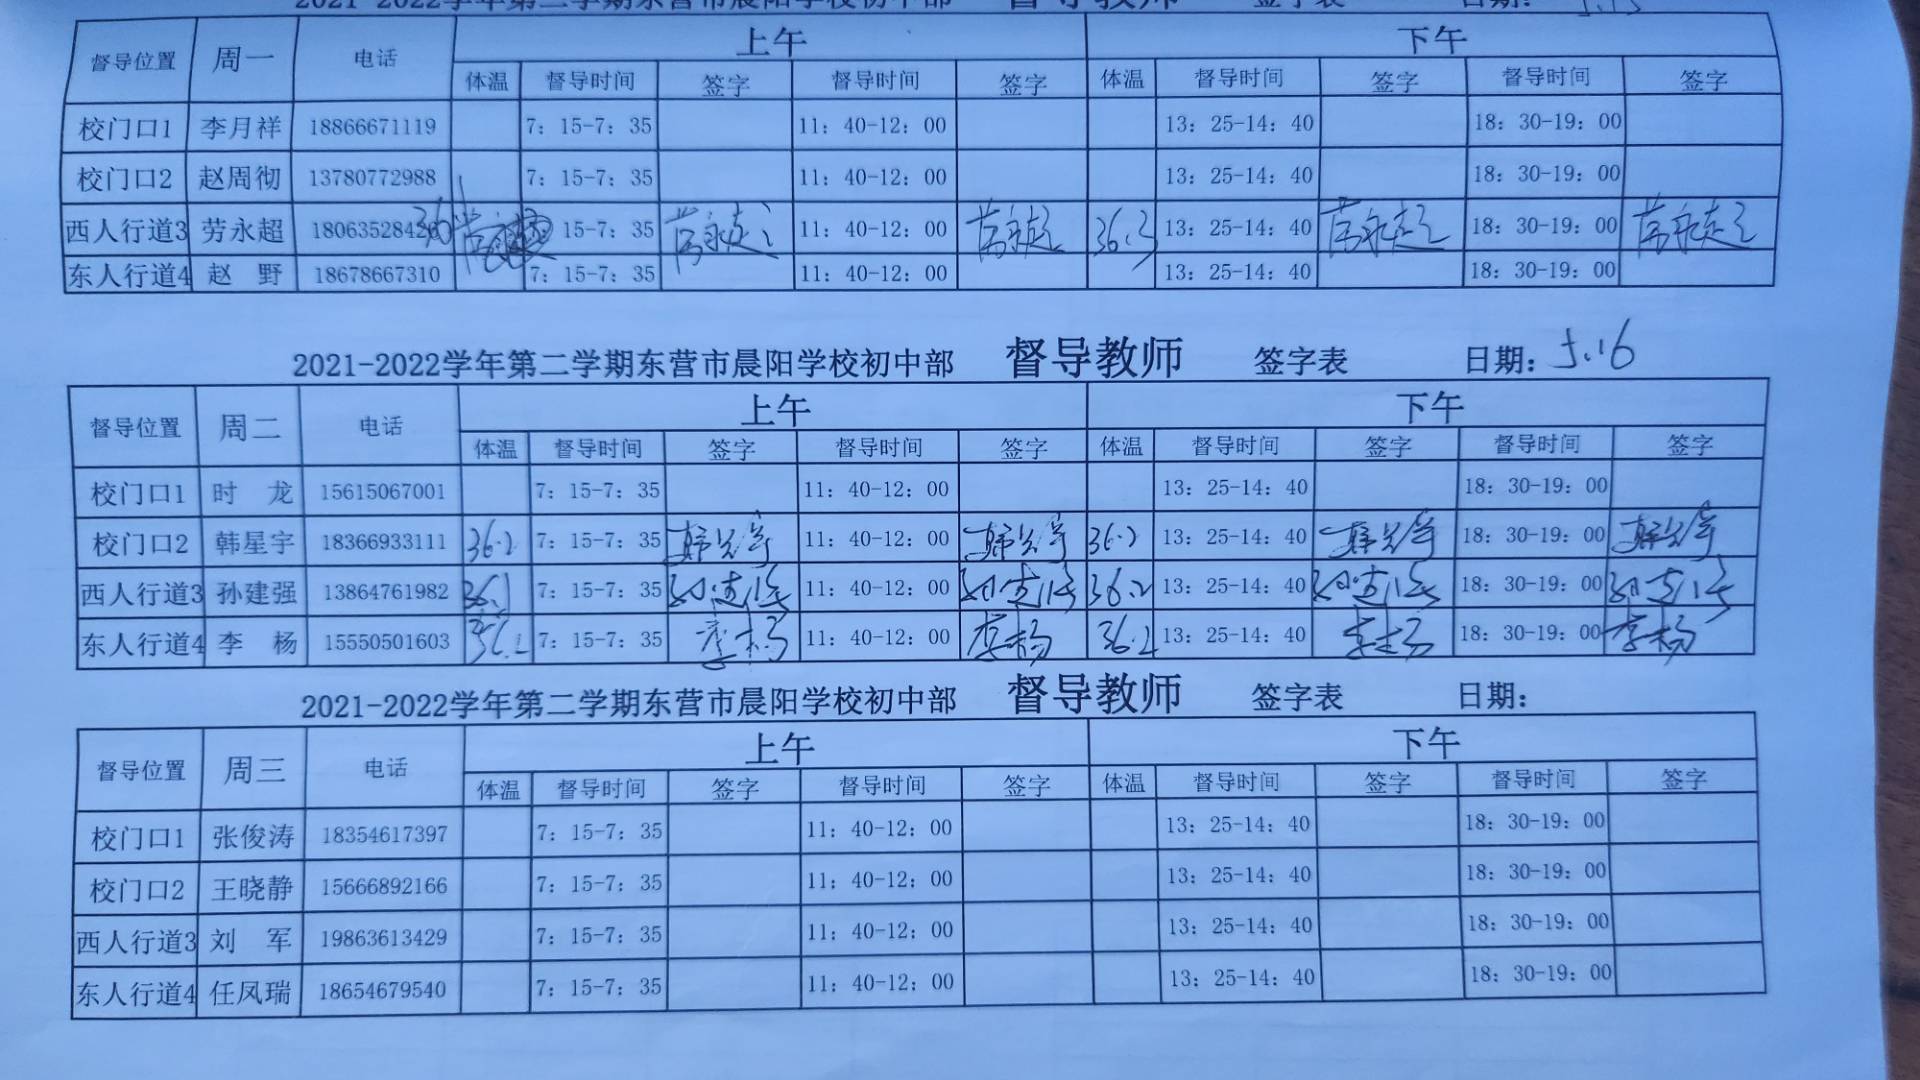 2021-2022学年第二学期东营市晨阳学校初中部 督导教师 签字表 日期:
督导位置 周一 电话 上午 下午
体温 督导时间 签字 督导时间 签字 体温 督导时间 签字 督导时间 签字
校门口1 李月祥 18866671119 7：15-7：35 11：40-12：00 13：25-14：40 18：30-19：00
校门口2 赵周彻 13780772988 7：15-7：35 11：40-12：00 13：25-14：40 18：30-19：00
西人行道3 劳永超 180635284 15-7：35 劳永超 11：40-12：00 劳永超 36.3 13：25-14：40 劳永超 18：30-19：00 劳永超
东人行道4 赵 野 18678667310 7：15-7：35 11：40-12：00 13：25-14：40 18：30-19：00
2021-2022学年第二学期东营市晨阳学校初中部 督导教师 签字表 日期: 5.16
督导位置 周二 电话 上午 下午
体温 督导时间 签字 督导时间 签字 体温 督导时间 签字 督导时间 签字
校门口1 时 龙 15615067001 7：15-7：35 11：40-12：00 13：25-14：40 18：30-19：00
校门口2 韩星宇 18366933111 36.2 7：15-7：35 韩星宇 11：40-12：00 韩星宇 36.2 13：25-14：40 韩星宇 18：30-19：00 韩星宇
西人行道3 孙建强 13864761982 36.1 7：15-7：35 孙建强 11：40-12：00 孙建强 36.2 13：25-14：40 孙建强 18：30-19：00 孙建强
东人行道4 李 杨 15550501603 36.2 7：15-7：35 李杨 11：40-12：00 李杨 36.2 13：25-14：40 李杨 18：30-19：00 李杨
2021-2022学年第二学期东营市晨阳学校初中部 督导教师 签字表 日期:
督导位置 周三 电话 上午 下午
体温 督导时间 签字 督导时间 签字 体温 督导时间 签字 督导时间 签字
校门口1 张俊涛 18354617397 7：15-7：35 11：40-12：00 13：25-14：40 18：30-19：00
校门口2 王晓静 15666892166 7：15-7：35 11：40-12：00 13：25-14：40 18：30-19：00
西人行道3 刘 军 19863613429 7：15-7：35 11：40-12：00 13：25-14：40 18：30-19：00
东人行道4 任凤瑞 18654679540 7：15-7：35 11：40-12：00 13：25-14：40 18：30-19：00